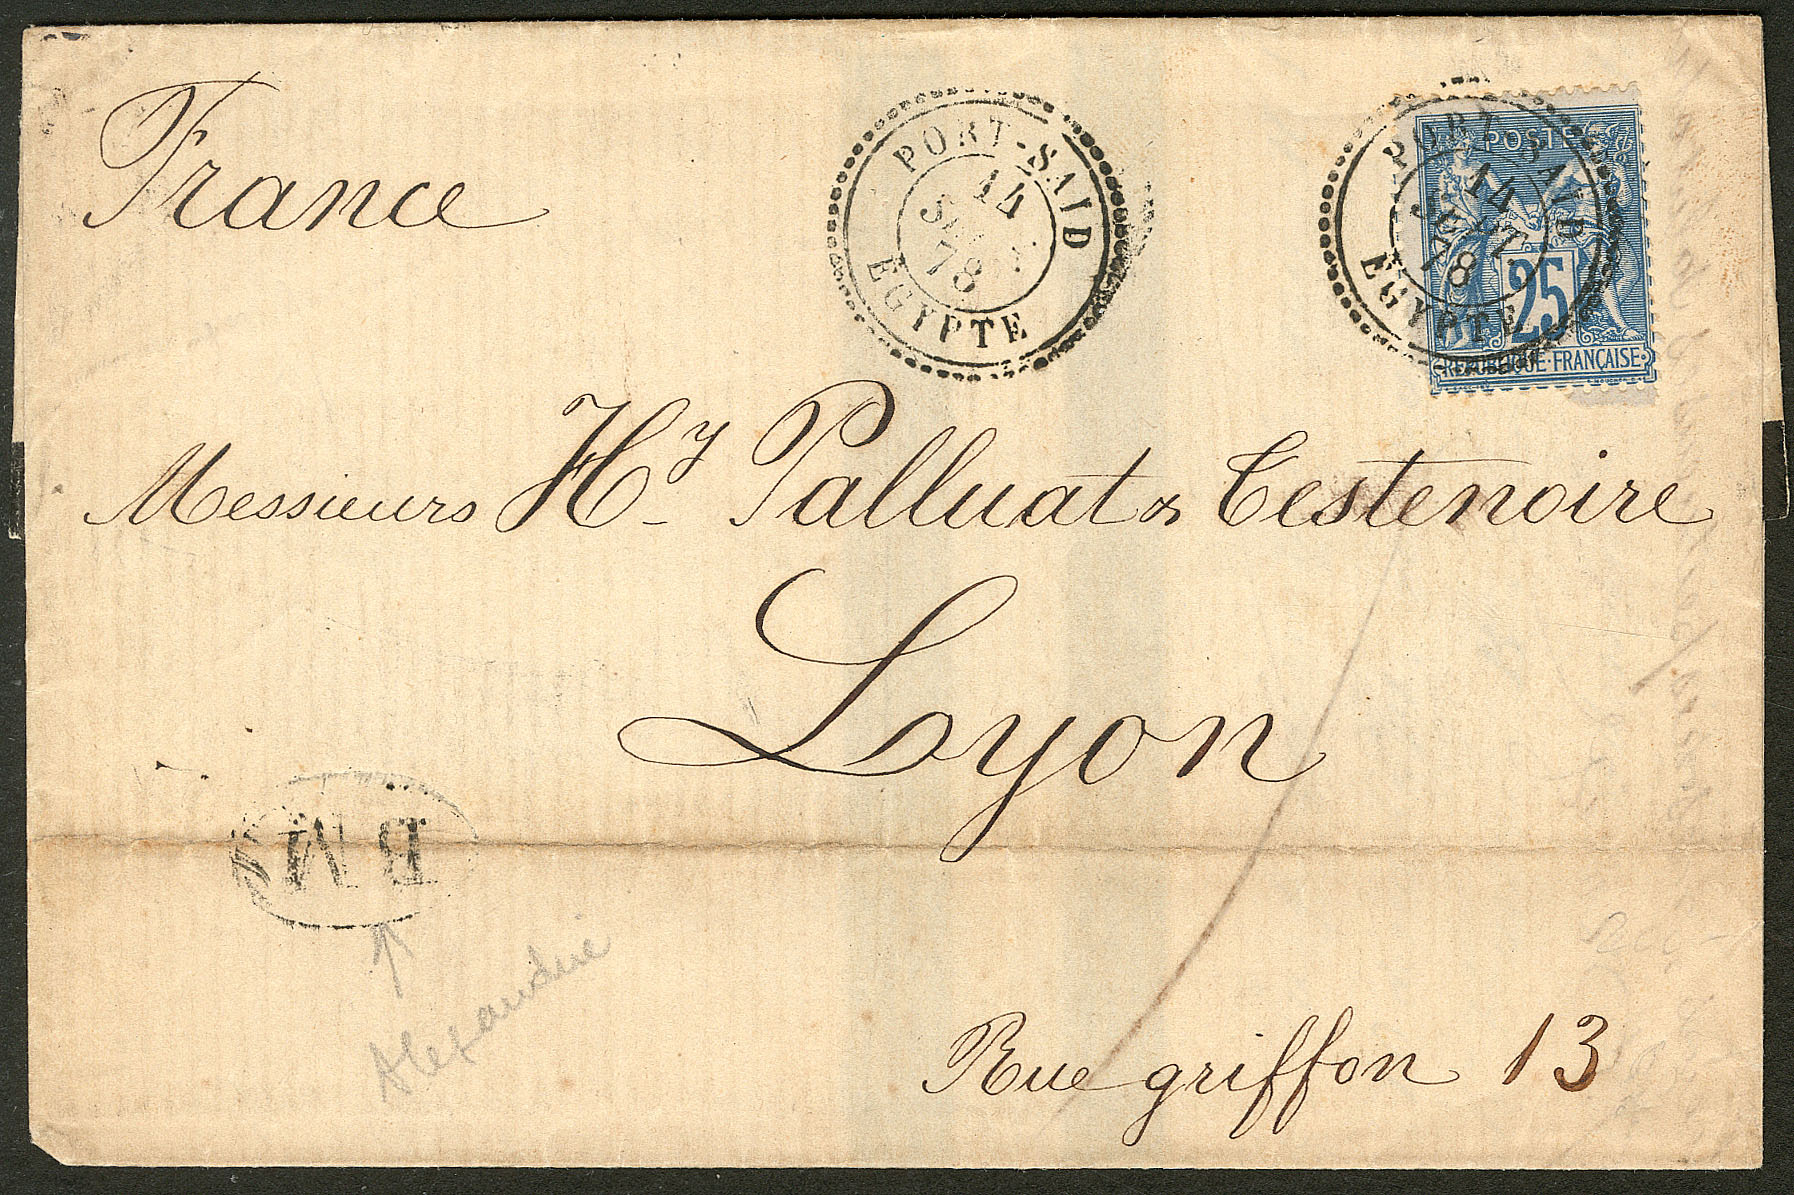 France
PORT-SAID
14
SEPT.
78
EGYPTE
PORT-SAID
14
SEPT.
78
EGYPTE
POSTE
25
REPUBLIQUE·FRANÇAISE
Messieurs Hy Palluat & Testenoire
Lyon
BM
Alexandrie
Rue griffon 13